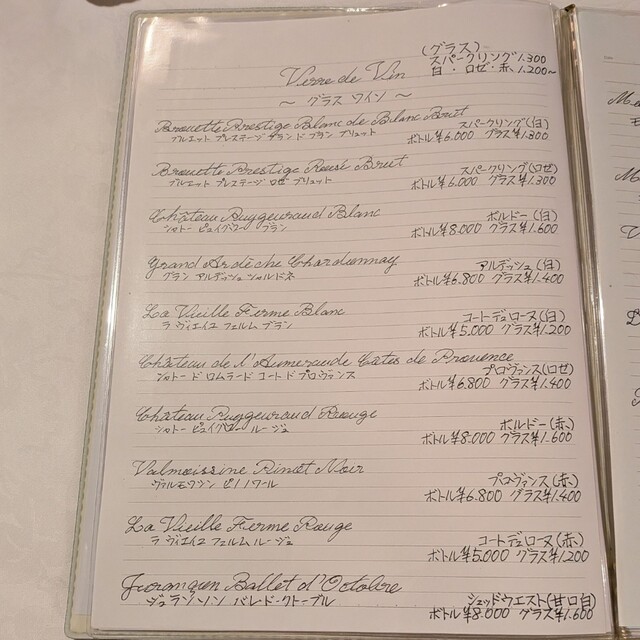 (グラス)
スパークリング1.300
Verre de Vin 白・ロゼ・赤、1.200~
~ グラス ワイン ~
Brouette Prestige Blanc de Blanc Brut スパークリング(白)
ブルエット プレステージ ブラン ド ブラン ブリュット ボトル¥6.000 グラス¥1.300
Brouette Prestige Rosé Brut スパークリング(ロゼ)
ブルエット プレステージ ロゼ ブリュット ボトル¥6.000 グラス¥1.300
Château Puygueraud Blanc ボルドー(白)
シャトー ピュイグロー ブラン ボトル¥8.000 グラス¥1.600
Grand Ardèche Chardonnay アルデッシュ(白)
グラン アルデッシュ シャルドネ ボトル¥6.800 グラス¥1.400
La Vieille Ferme Blanc コートデュローヌ(白)
ラ ヴィエイユ フェルム ブラン ボトル¥5.000 グラス¥1.200
Château de l'Aumerade Côtes de Provence プロヴァンス(ロゼ)
シャトー ド ロムラード コート ド プロヴァンス ボトル¥6.800 グラス¥1.400
Château Puygueraud Rouge ボルドー(赤)
シャトー ピュイグロー ルージュ ボトル¥8.000 グラス¥1.600
Valmoissine Pinot Noir プロヴァンス(赤)
ヴァルモワシン ピノ ノワール ボトル¥6.800 グラス¥1.400
La Vieille Ferme Rouge コートデュローヌ(赤)
ラ ヴィエイユ フェルム ルージュ ボトル¥5.000 グラス¥1.200
Jurançon Ballet d'Octobre シュッドウエスト(甘口白)
ジュランソン バレ・ド・クトーブル ボトル¥8.000 グラス¥1.600